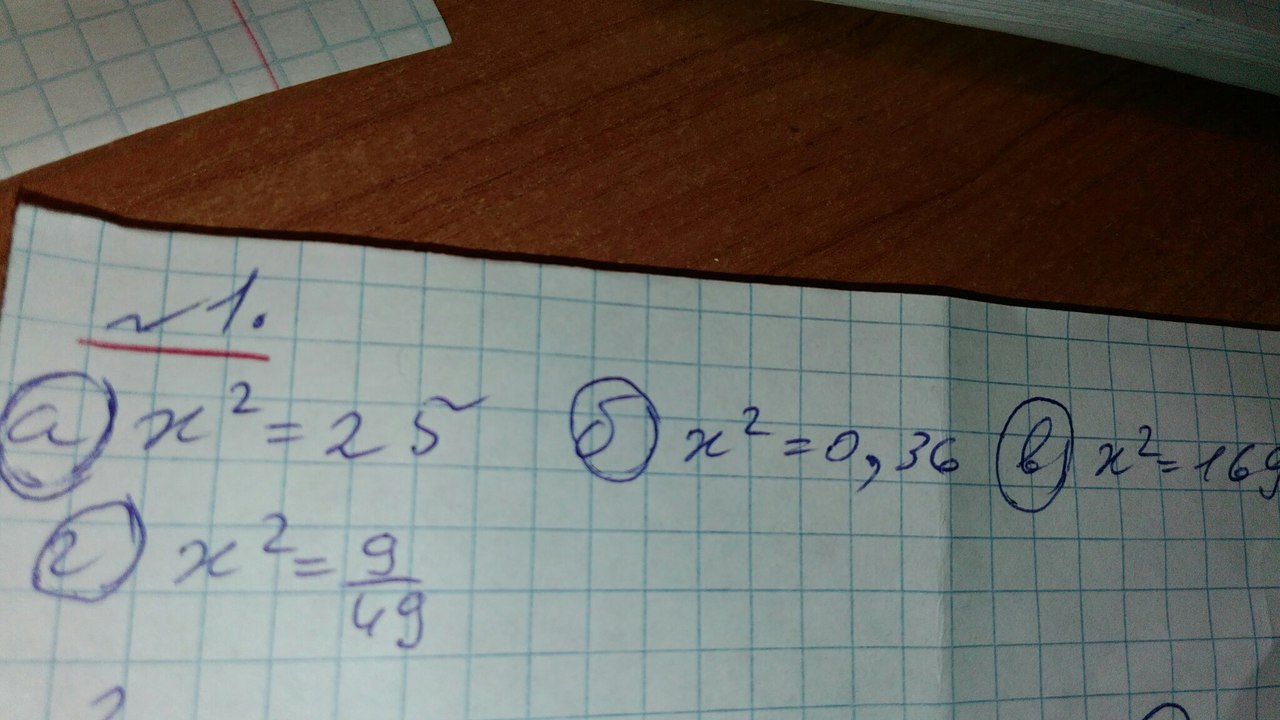 №1.
а) x² = 25 б) x² = 0,36 в) x² = 169
г) x² = 9/49